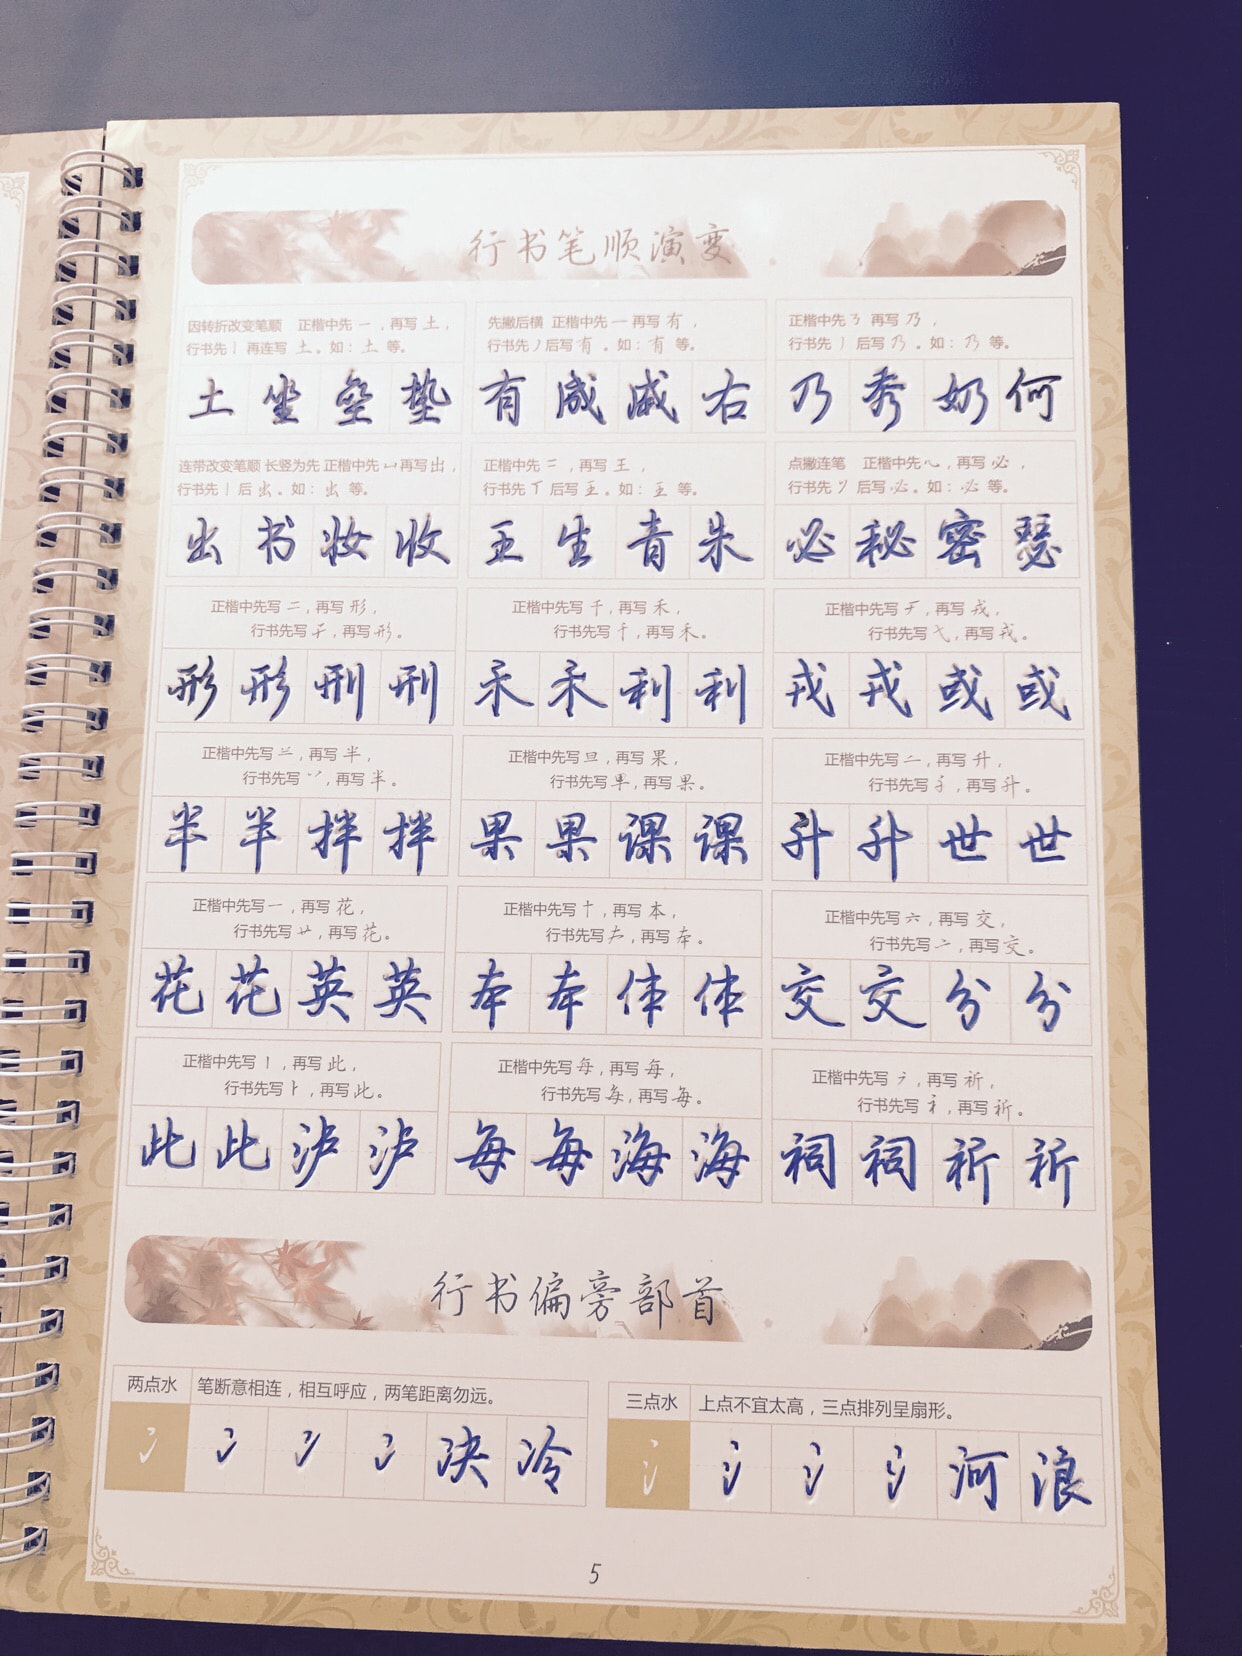 行书笔顺演变
因转折改变笔顺 正楷中先一，再写土，
行书先丨再连写土。如：土等。
先撇后横 正楷中先一再写有，
行书先丿后写有。如：有等。
正楷中先㇋再写乃，
行书先丿后写乃。如：乃等。
土坐垒垫
有咸戚右
乃秀奶何
连带改变笔顺 长竖为先 正楷中先凵再写出，
行书先丨后出。如：出等。
正楷中先二，再写王，
行书先丅后写王。如：王等。
点撇连笔 正楷中先心，再写必，
行书先ソ后写必。如：必等。
出书妆收
王生青朱
必秘密瑟
正楷中先写二，再写形，
行书先写开，再写形。
正楷中先写千，再写禾，
行书先写亻，再写禾。
正楷中先写ナ，再写戎，
行书先写弋，再写戎。
形形刑刑
禾禾利利
戎戎或或
正楷中先写兰，再写半，
行书先写丷，再写半。
正楷中先写旦，再写果，
行书先写甲，再写果。
正楷中先写二，再写升，
行书先写，再写升。
半半拌拌
果果课课
升升世世
正楷中先写一，再写花，
行书先写艹，再写花。
正楷中先写十，再写本，
行书先写，再写本。
正楷中先写六，再写交，
行书先写亠，再写交。
花花英英
本本体体
交交分分
正楷中先写丨，再写此，
行书先写⺊，再写此。
正楷中先写每，再写每，
行书先写每，再写每。
正楷中先写，再写祈，
行书先写礻，再写祈。
此此泸泸
每每海海
祠祠祈祈
行书偏旁部首
两点水 笔断意相连，相互呼应，两笔距离勿远。
冫冫冫冫决冷
三点水 上点不宜太高，三点排列呈扇形。
氵氵氵氵河浪
5